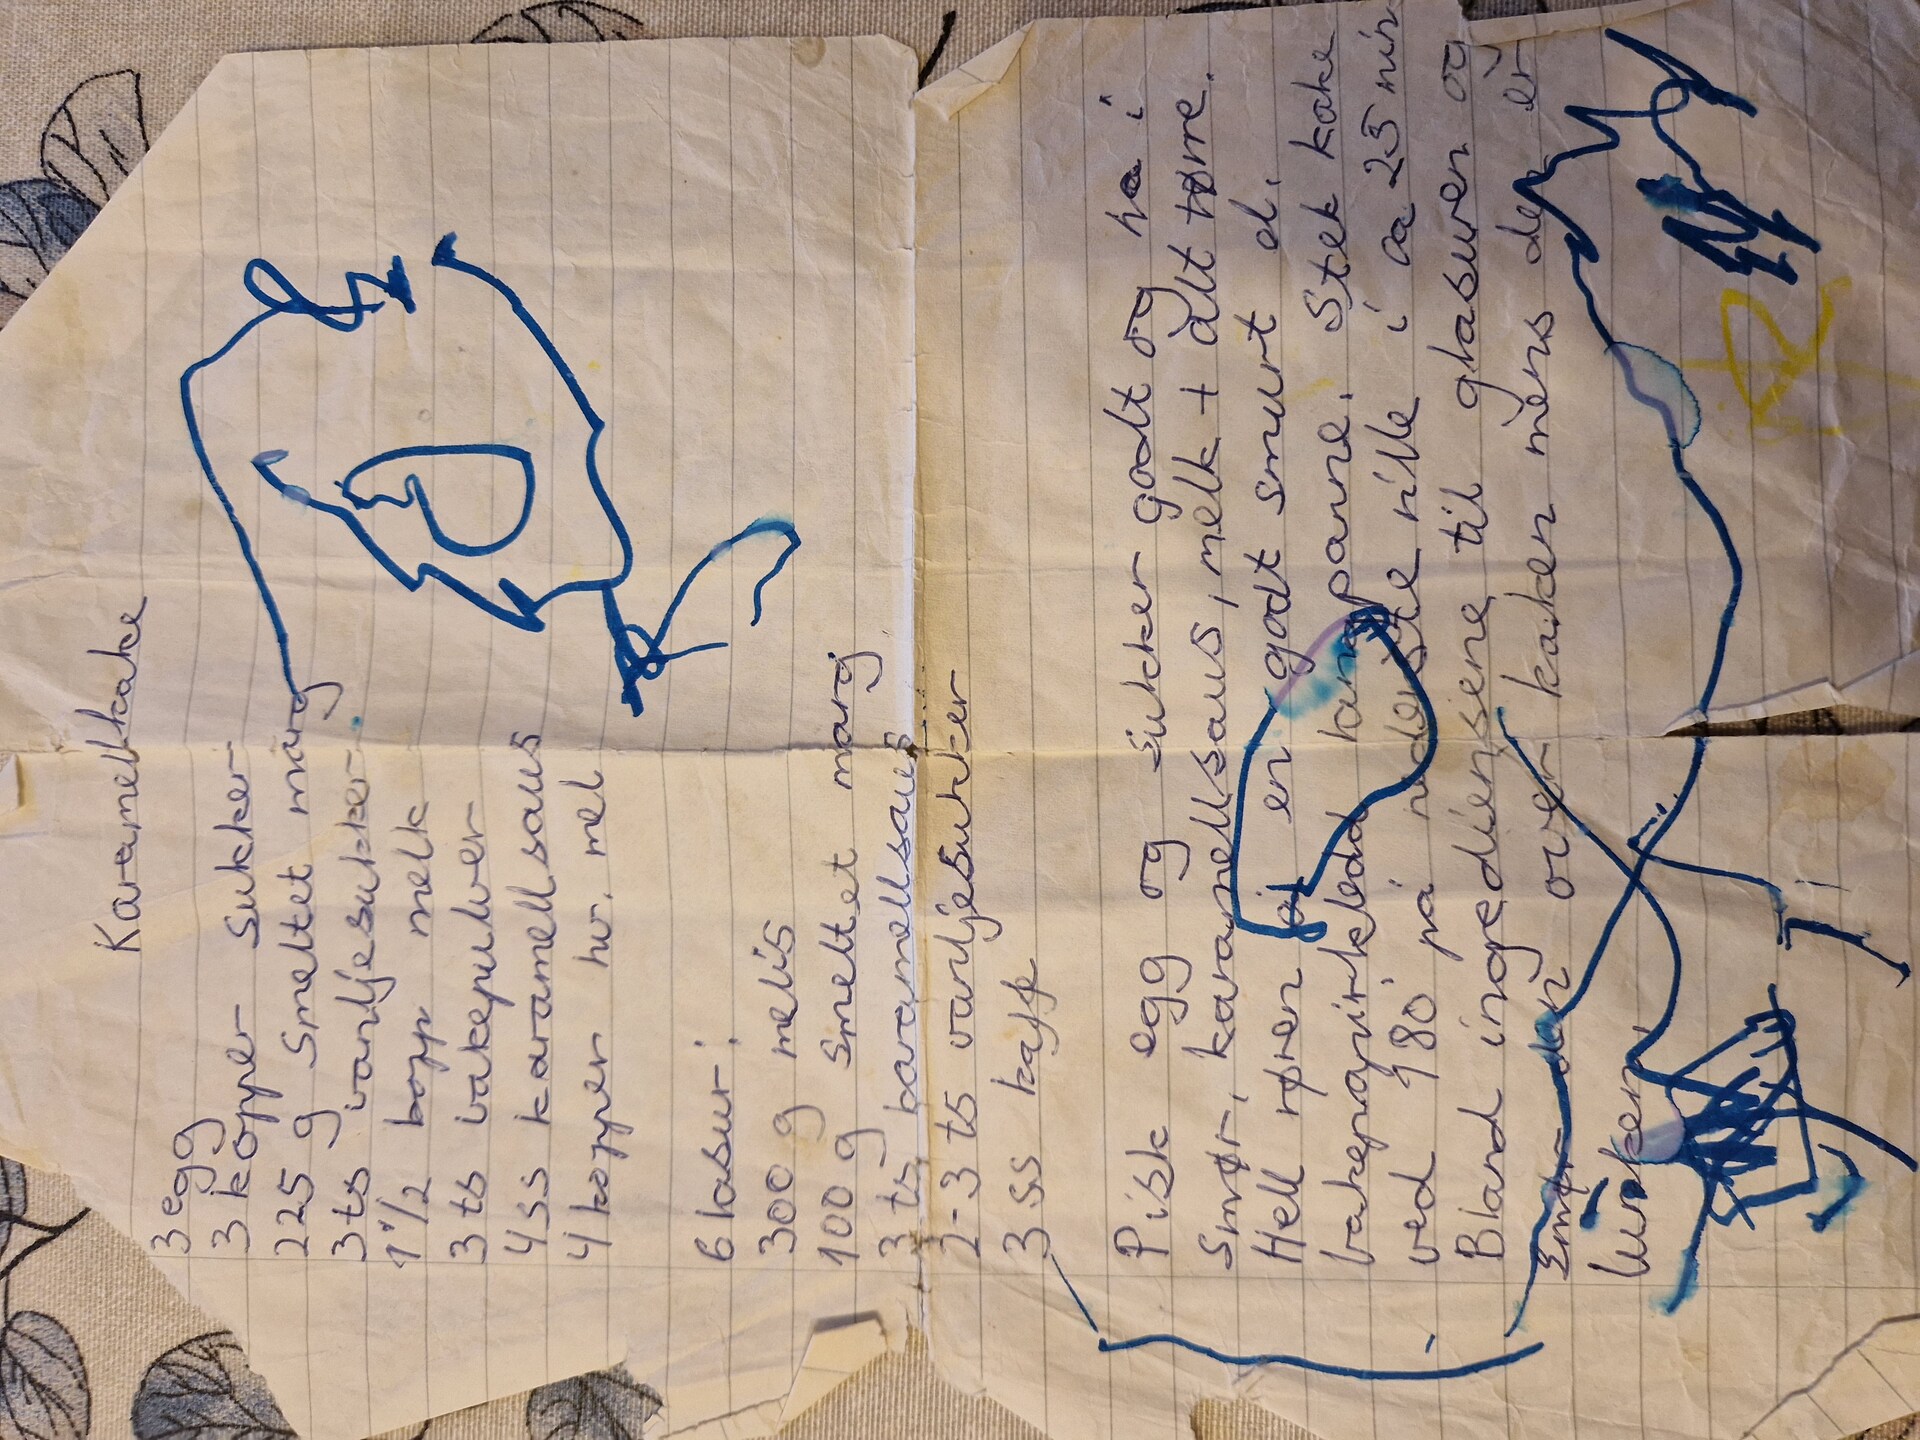 Karamellkake
3 egg
3 kopper sukker
225 g Smeltet marg
3 ts vaniljesukker
1 1/2 kopp melk
3 ts bakepulver
4 ss karamellsaus
4 kopper hv. mel
Glasur:
300 g melis
100 g Smeltet marg
3 ts karamellsaus
2-3 ts vaniljesukker
3 ss kaffe
Pisk egg og sukker godt og ha i
smør, karamellsaus, melk + alt tørre.
Hell røren i en godt smurt el.
bakepapirkledd langpanne. Stek kake
ved 180° på nederste rille i ca 25 min
Bland ingrediensene til glasuren og
smør den over kaken mens den er
lunken.